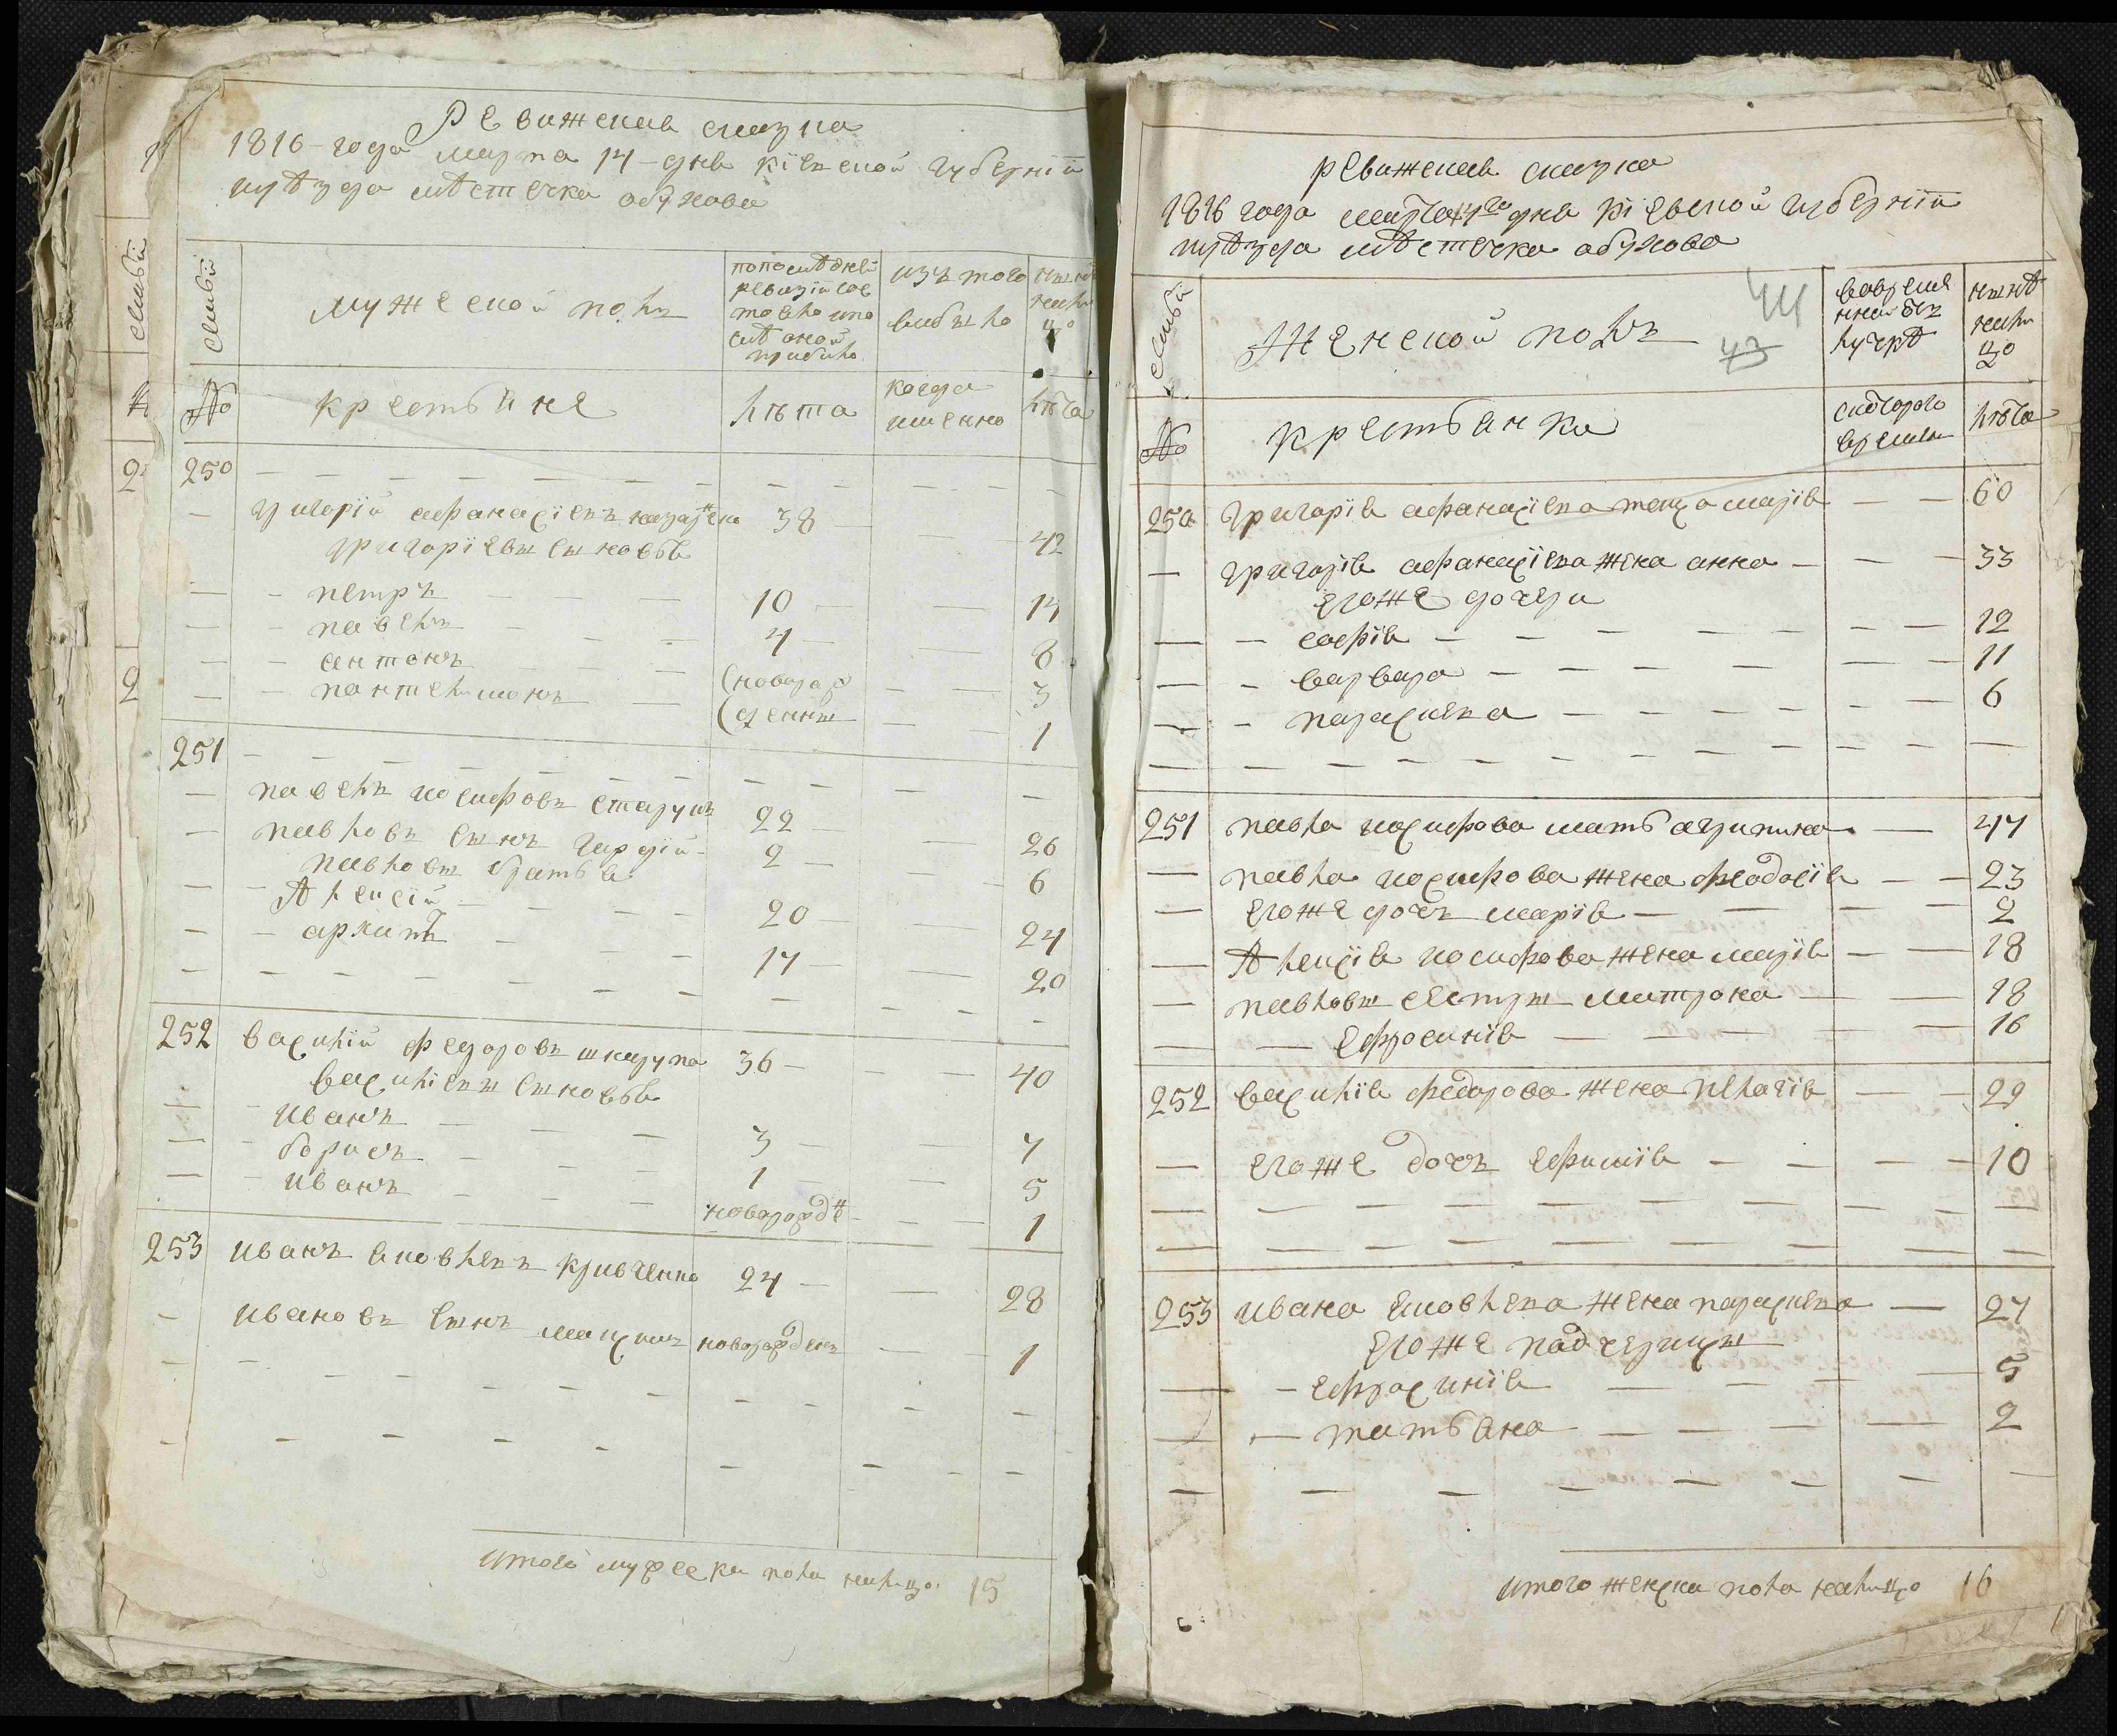 Ревижская сказка
1816 года марта 14 дня кіевской губерніи
и уѣзда мѣстечка обухова
семьи
мужеской полъ
попослѣдней ревизіи состояло и послѣ оной прибыло
изъ того выбыло
нынѣ налицо
№
крестьяне
лѣта
когда именно
лѣта
250
григорій афанасіевъ 38 42
григоріевы сыновья
петръ 10 14
павелъ 4 8
антонъ (новорож 3
пантелимонъ (денны 1
251
павелъ иосифовъ старунъ 22 26
павловъ сынъ гардій 2 6
павловы братья
Алексій 20 24
архипъ 17 20
252 василій федоровъ шкарупа 36 40
василіевы сыновья
иванъ 3 7
борисъ 1 5
иванъ новорожде 1
253 иванъ яковлевъ кривченко 24 28
ивановъ сынъ максимъ новорожденъ 1
итого мужеска пола налицо 15
ревижская сказка
1816 года марта 14го дня кіевской губерніи
и уѣзда мѣстечка обухова
семьи
женской полъ
44
43
вовременной отлучкѣ
нынѣ налицо
№
крестьянка
скотораго времени
лѣта
250 григорія афанасіева теща марія 60
григорія афанасіева жена анна 33
егоже дочери
софія 12
варвара 11
параскева 6
251 павла иосифова мать агрипина 47
павла иосифова жена феодосія 23
егоже дочь марія 2
Алексія иосифова жена марія 18
павловы сестры матрона 18
ефросинія 16
252 василія федорова жена пелагія 29
егоже дочь ефимія 10
253 ивана яковлева жена параскева 27
егоже падчерицы
ефросинія 5
татьяна 2
итого женска пола налицо 16